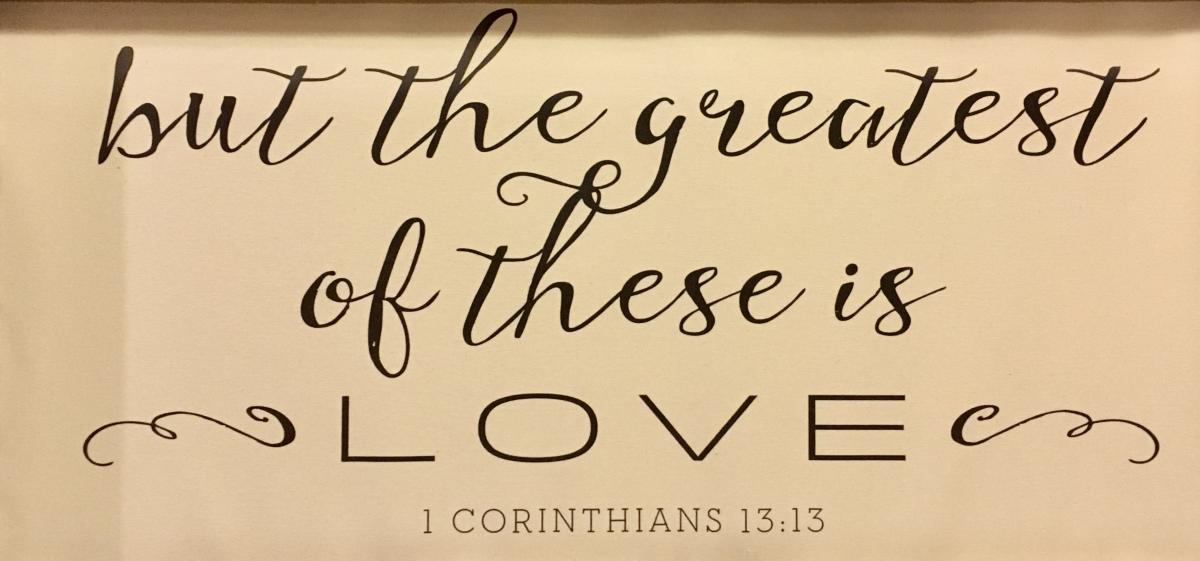 but the greatest
of these is
LOVE
1 CORINTHIANS 13:13